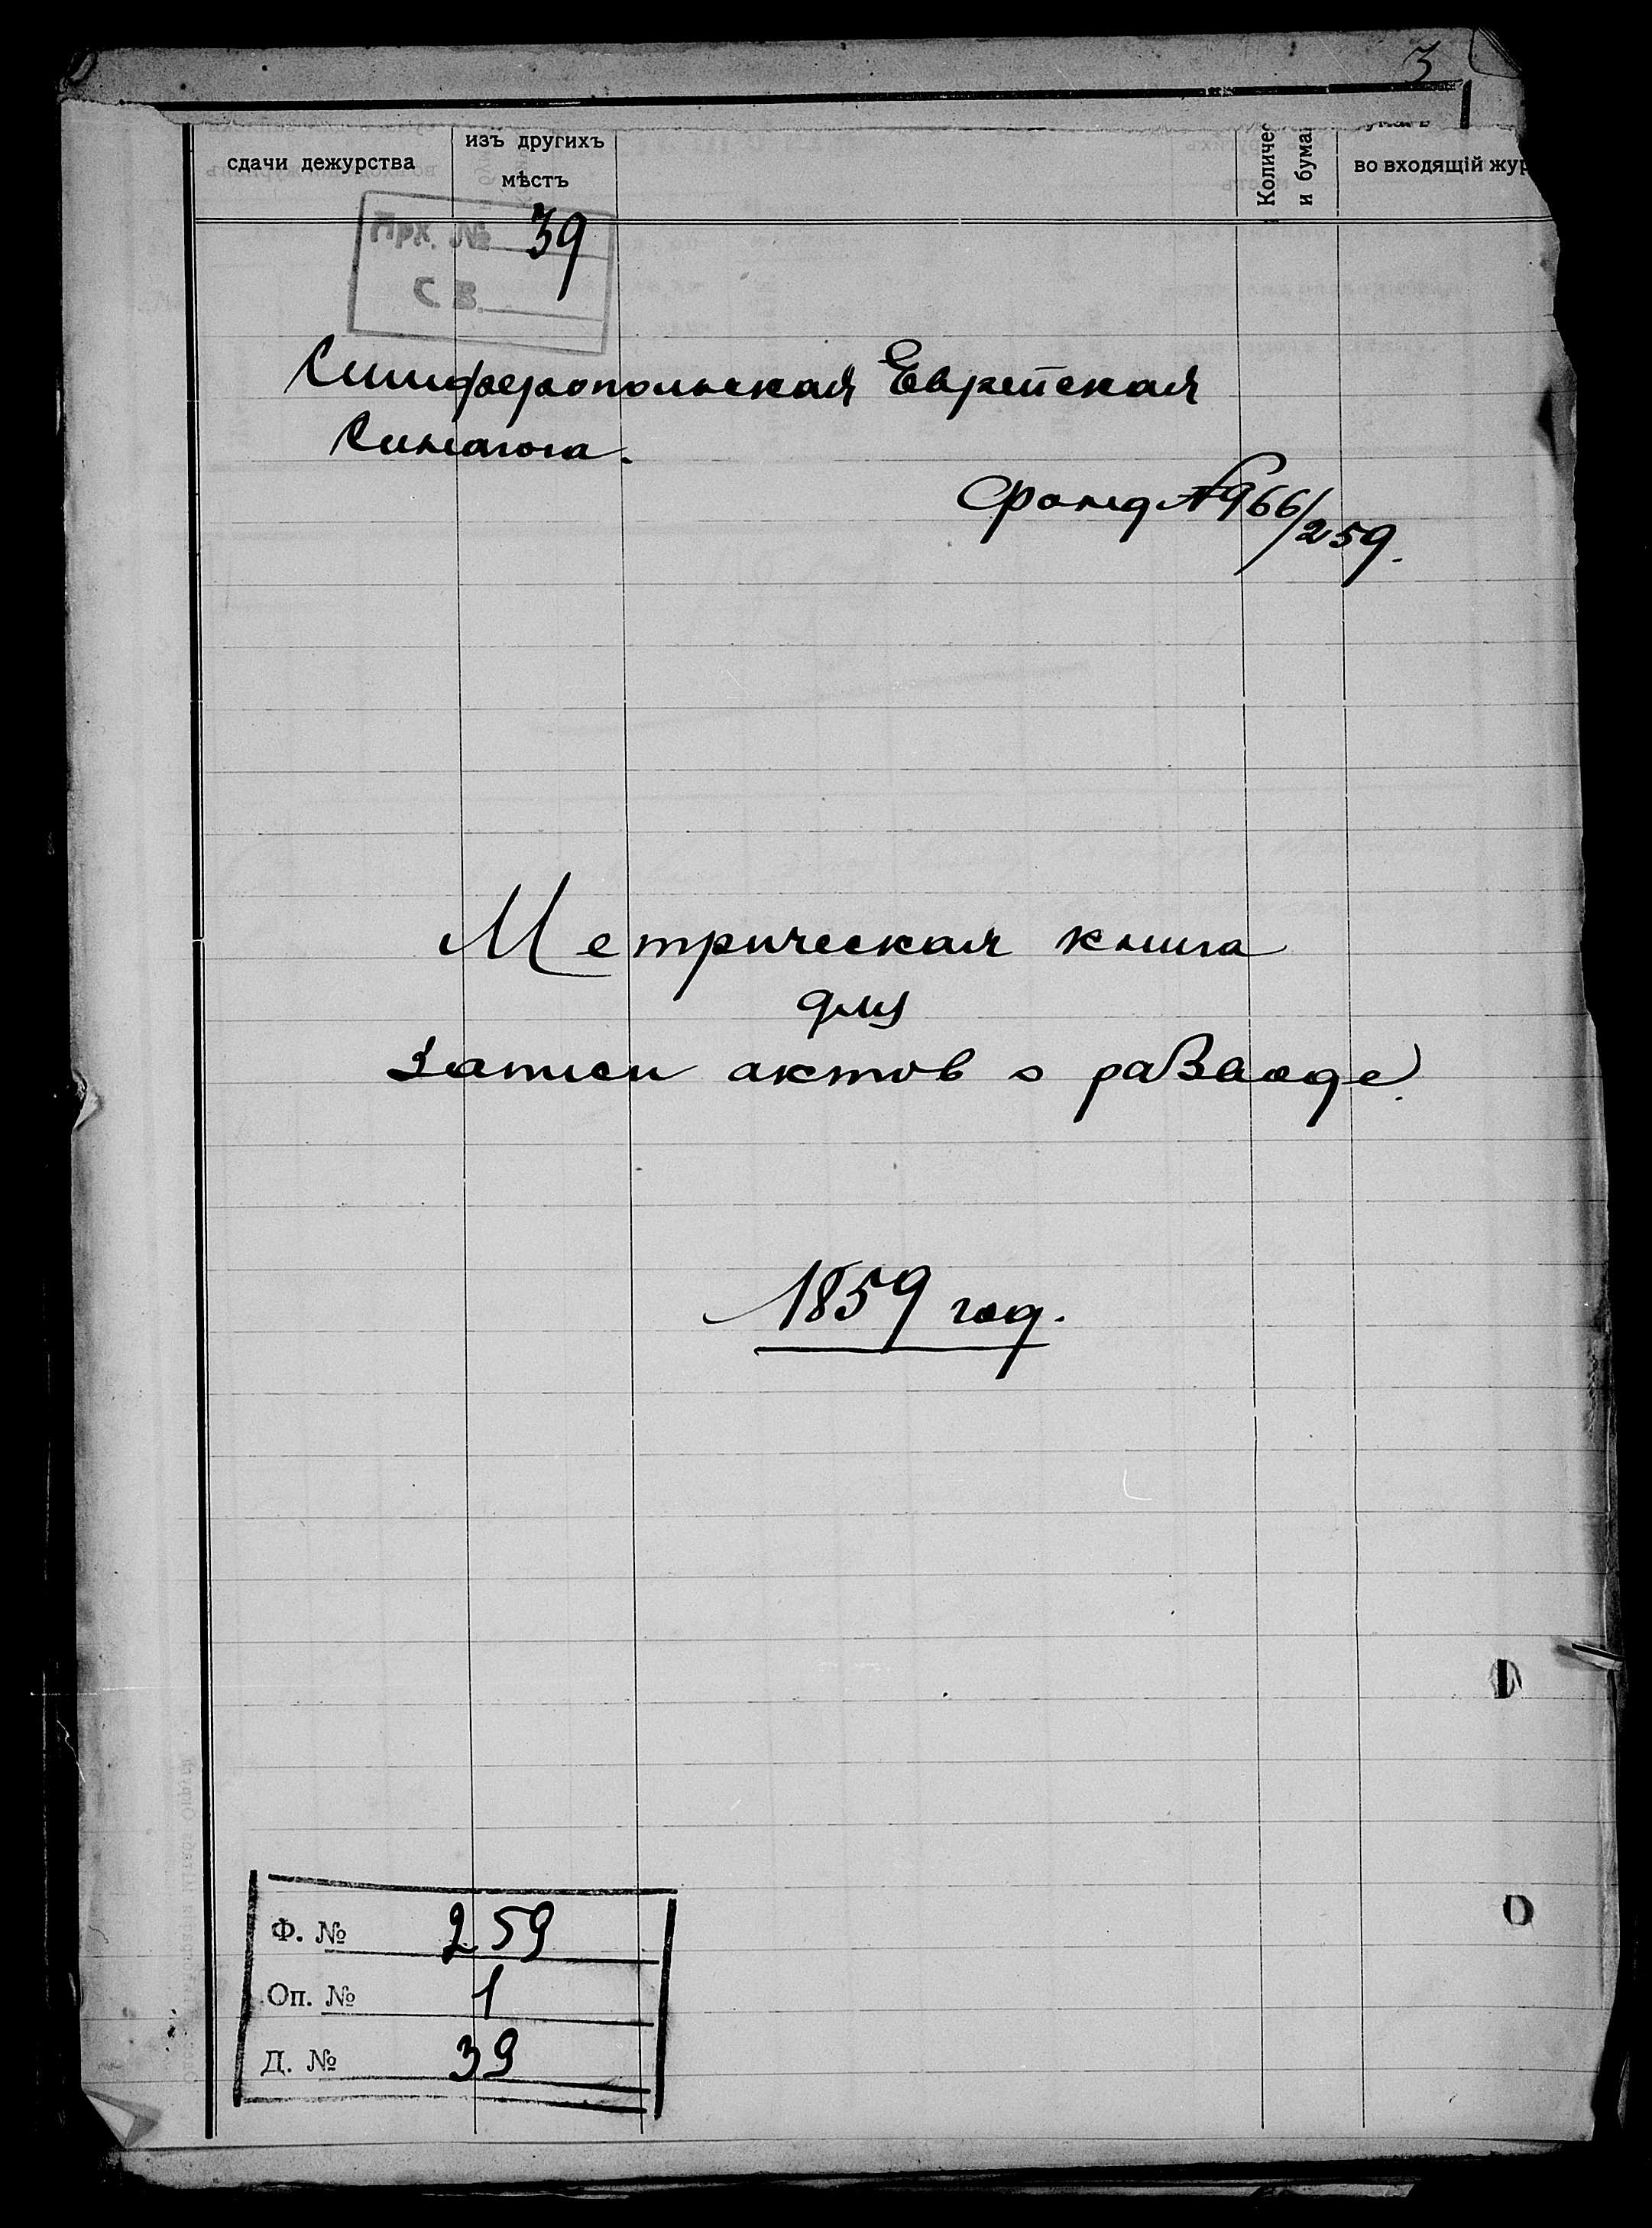 3
сдачи дежурства
изъ другихъ
мѣстъ
Количес
и бума
во входящій жур
Арх. № 39
С. В.
Симферопольская Еврейская
Синагога.
Фонд № 966/259.
Метрическая книга
для
записи актов о разводе.
1859 год.
Ф. № 259
Оп. № 1
Д. № 39